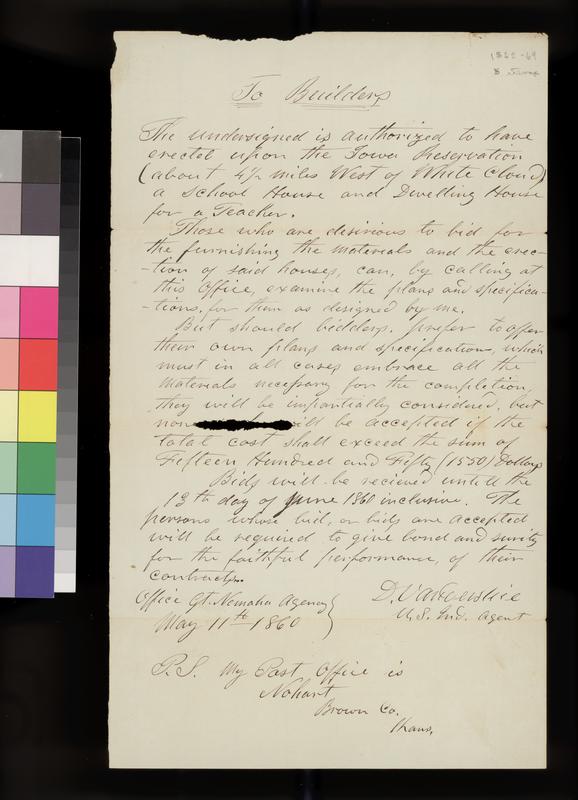 1862-69
To Builders
The undersigned is authorized to have
erected upon the Iowa Reservation
(about 4½ miles West of White Cloud)
a School House and Dwelling House
for a Teacher.
Those who are desirious to bid for
the furnishing the materials and the erec-
-tion of said houses, can, by calling at
this Office, examine the plans and specifica-
-tions, for them as designed by me.
But should bidders, prefer to offer
their own plans and specifications, which
must in all cases embrace all the
materials necessary for the completion,
they will be impartially considered, but
non will be accepted if the
total cost shall exceed the sum of
Fifteen Hundred and Fifty (1550) Dollars
Bids will be recieved untill the
13th day of June 1860 inclusive. The
persons whose bid, or bids are accepted
will be required to give bond and surity
for the faithful performance, of their
contracts.
Office Gt. Nemaha Agency
May 11th 1860
D. Vanderslice
U.S. Ind. Agent
P.S. My Post Office is
Nohart
Brown Co.
Kans.